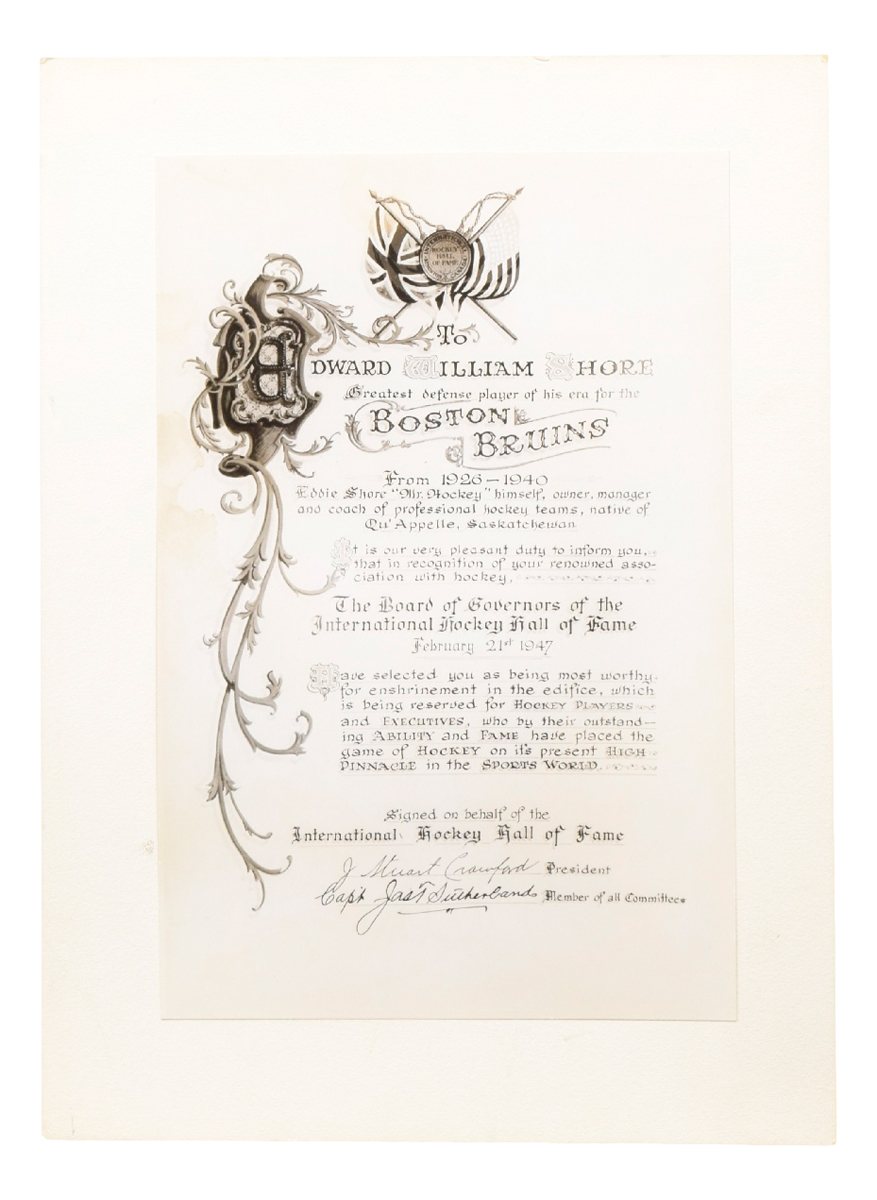 INTERNATIONAL
HOCKEY
HALL
OF FAME
To
EDWARD WILLIAM SHORE
Greatest defense player of his era for the
BOSTON
BRUINS
From 1926 – 1940
Eddie Shore "Mr. Hockey" himself, owner, manager
and coach of professional hockey teams, native of
Qu'Appelle, Saskatchewan
It is our very pleasant duty to inform you,
that in recognition of your renowned asso-
ciation with hockey,
The Board of Governors of the
International Hockey Hall of Fame
February 21st 1947
Have selected you as being most worthy
for enshrinement in the edifice, which
is being reserved for HOCKEY PLAYERS
and EXECUTIVES, who by their outstand-
ing ABILITY and FAME have placed the
game of HOCKEY on it's present HIGH
PINNACLE in the SPORTS WORLD.
Signed on behalf of the
International Hockey Hall of Fame
J Stuart Crawford President
Capt Jas T Sutherland Member of all Committees